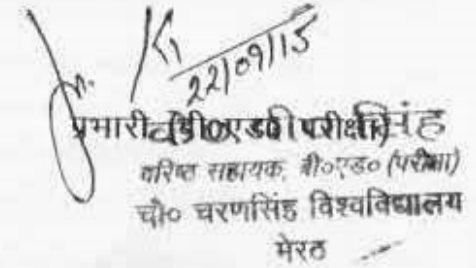 22/09/15
प्रभारी (बी०एड० परीक्षा) सिंह
वरिष्ठ सहायक, बी०एड० (परीक्षा)
चौ० चरणसिंह विश्वविद्यालय
मेरठ